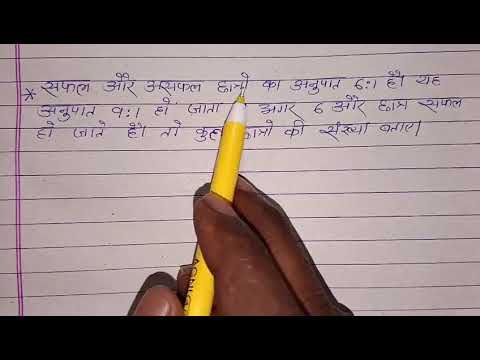 * सफल और असफल छात्रो का अनुपात 6:1 है। यह
अनुपात 9:1 हो जाता अगर 6 और छात्र सफल
हो जाते है। तो कुल छात्रो की संख्या बताए।